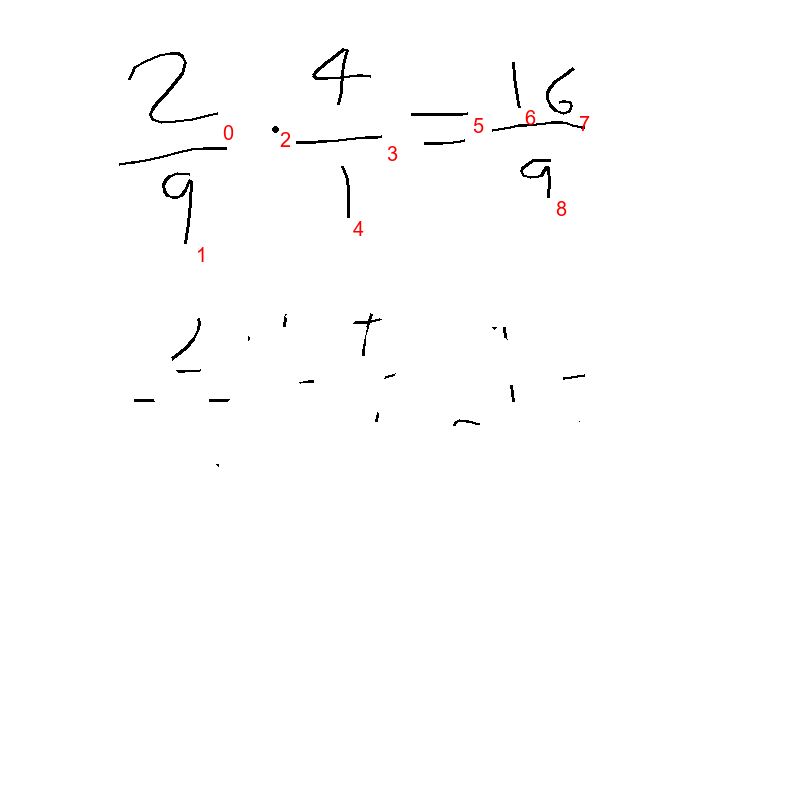 2/9 · 4/1 = 16/9
0 1 2 3 4 5 6 7 8